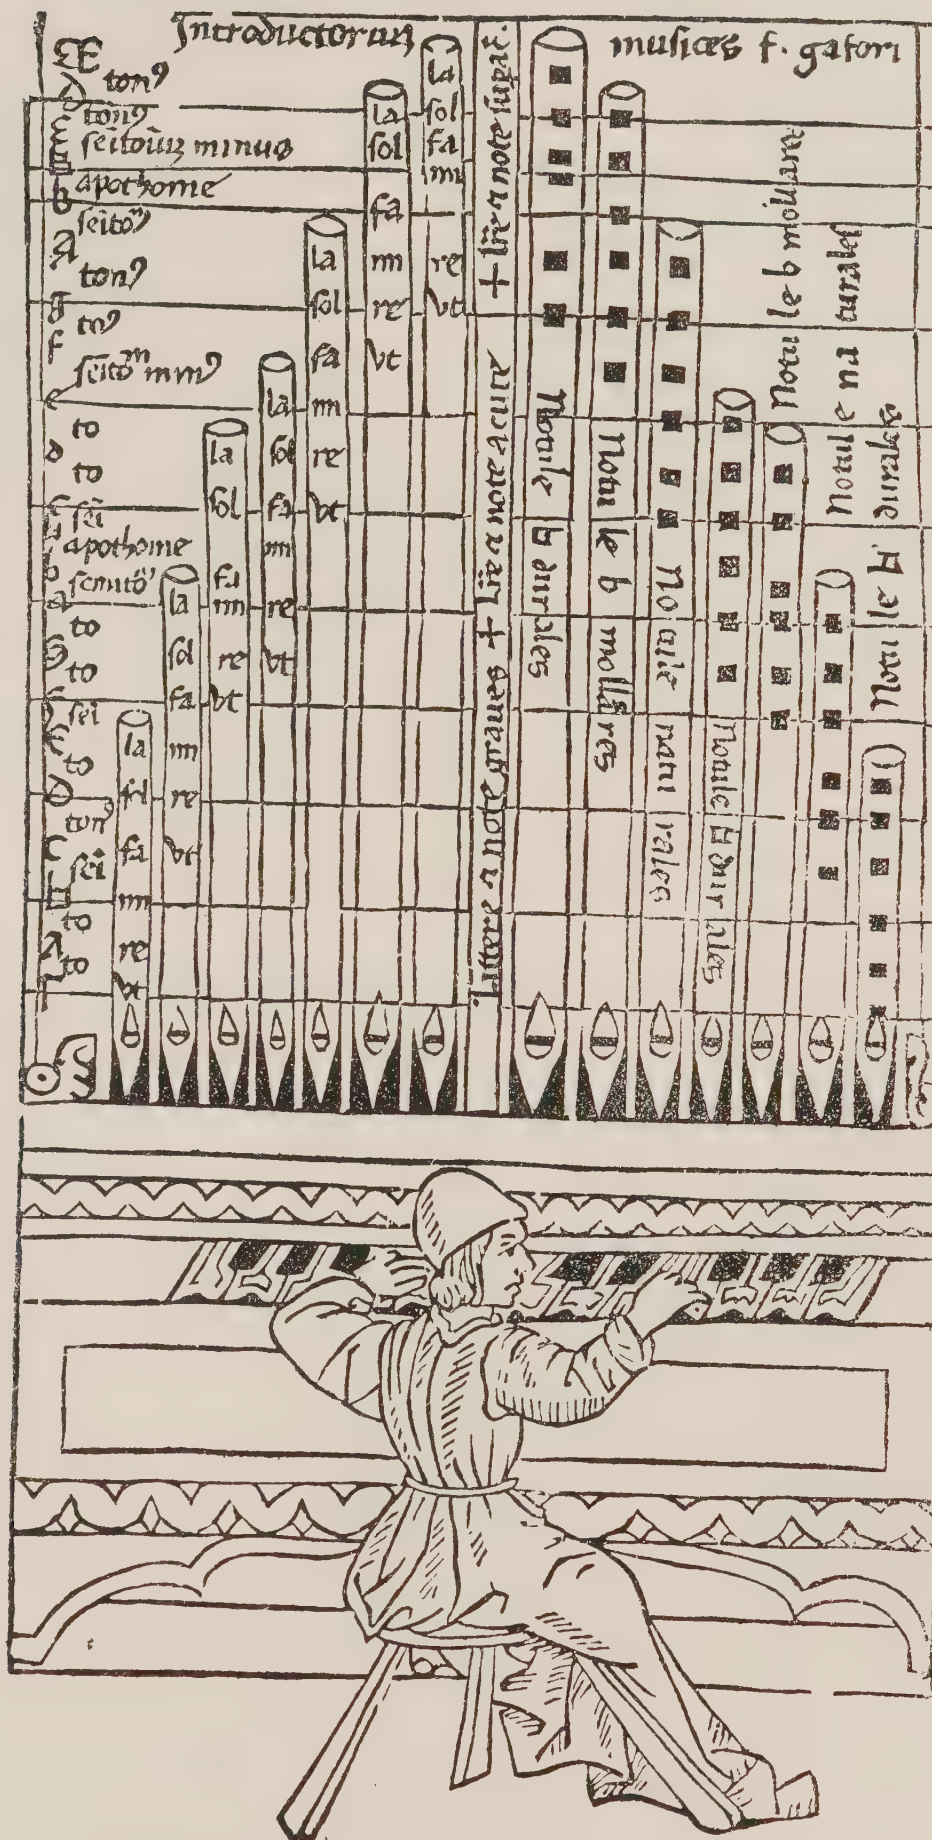 Introductoriuz musices f. gafori
EE
tonꝰ
tonꝰ
seitoiuz minus
apothome
seitoꝰ
tonꝰ
toꝰ
seitom minꝰ
to
to
sei
apothome
semitoꝰ
to
to
sei
to
tonꝰ
sei
to
to
la
sol
fa
mi
re
vt
la
sol
fa
mi
re
vt
la
sol
fa
mi
re
vt
la
sol
fa
mi
re
vt
la
sol
fa
mi
re
vt
la
sol
fa
mi
re
vt
la
sol
fa
mi
re
vt
Littere ⁊ note graues + Lr̄e ⁊ note acute + lr̄e ⁊ note supac.
Notule ♮ durales
Notule b mollares
Notule naturales
Notule ♮ durales
Notule b mollares
Notule naturales
Notule ♮ durales